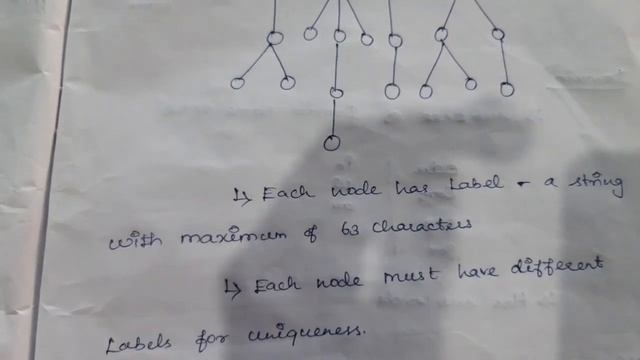 ↳ Each node has Label - a string
with maximum of 63 characters
↳ Each node must have different
Labels for uniqueness.